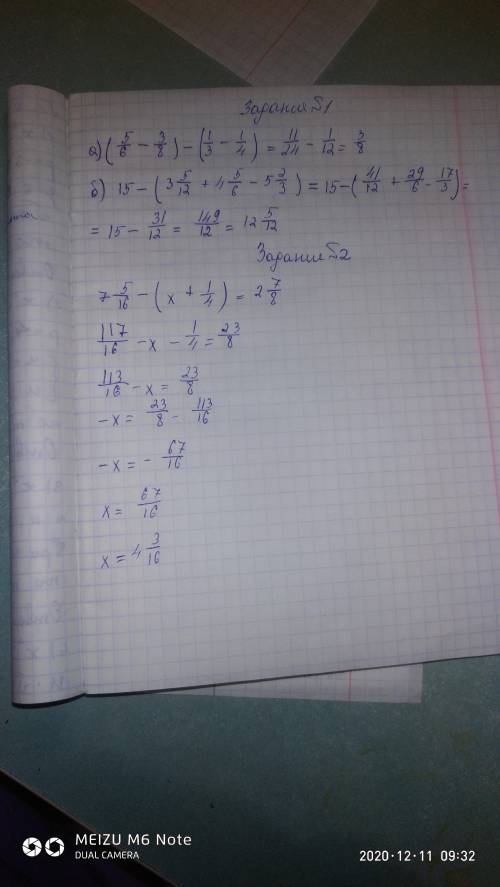 Задание №1
а) (5/6 - 3/8) - (1/3 - 1/4) = 11/24 - 1/12 = 3/8
б) 15 - (3 5/12 + 4 5/6 - 5 2/3) = 15 - (41/12 + 29/6 - 17/3) =
= 15 - 31/12 = 149/12 = 12 5/12
Задание №2
7 5/16 - (x + 1/4) = 2 7/8
117/16 - x - 1/4 = 23/8
113/16 - x = 23/8
-x = 23/8 - 113/16
-x = - 67/16
x = 67/16
x = 4 3/16
MEIZU M6 Note
DUAL CAMERA
2020-12-11 09:32